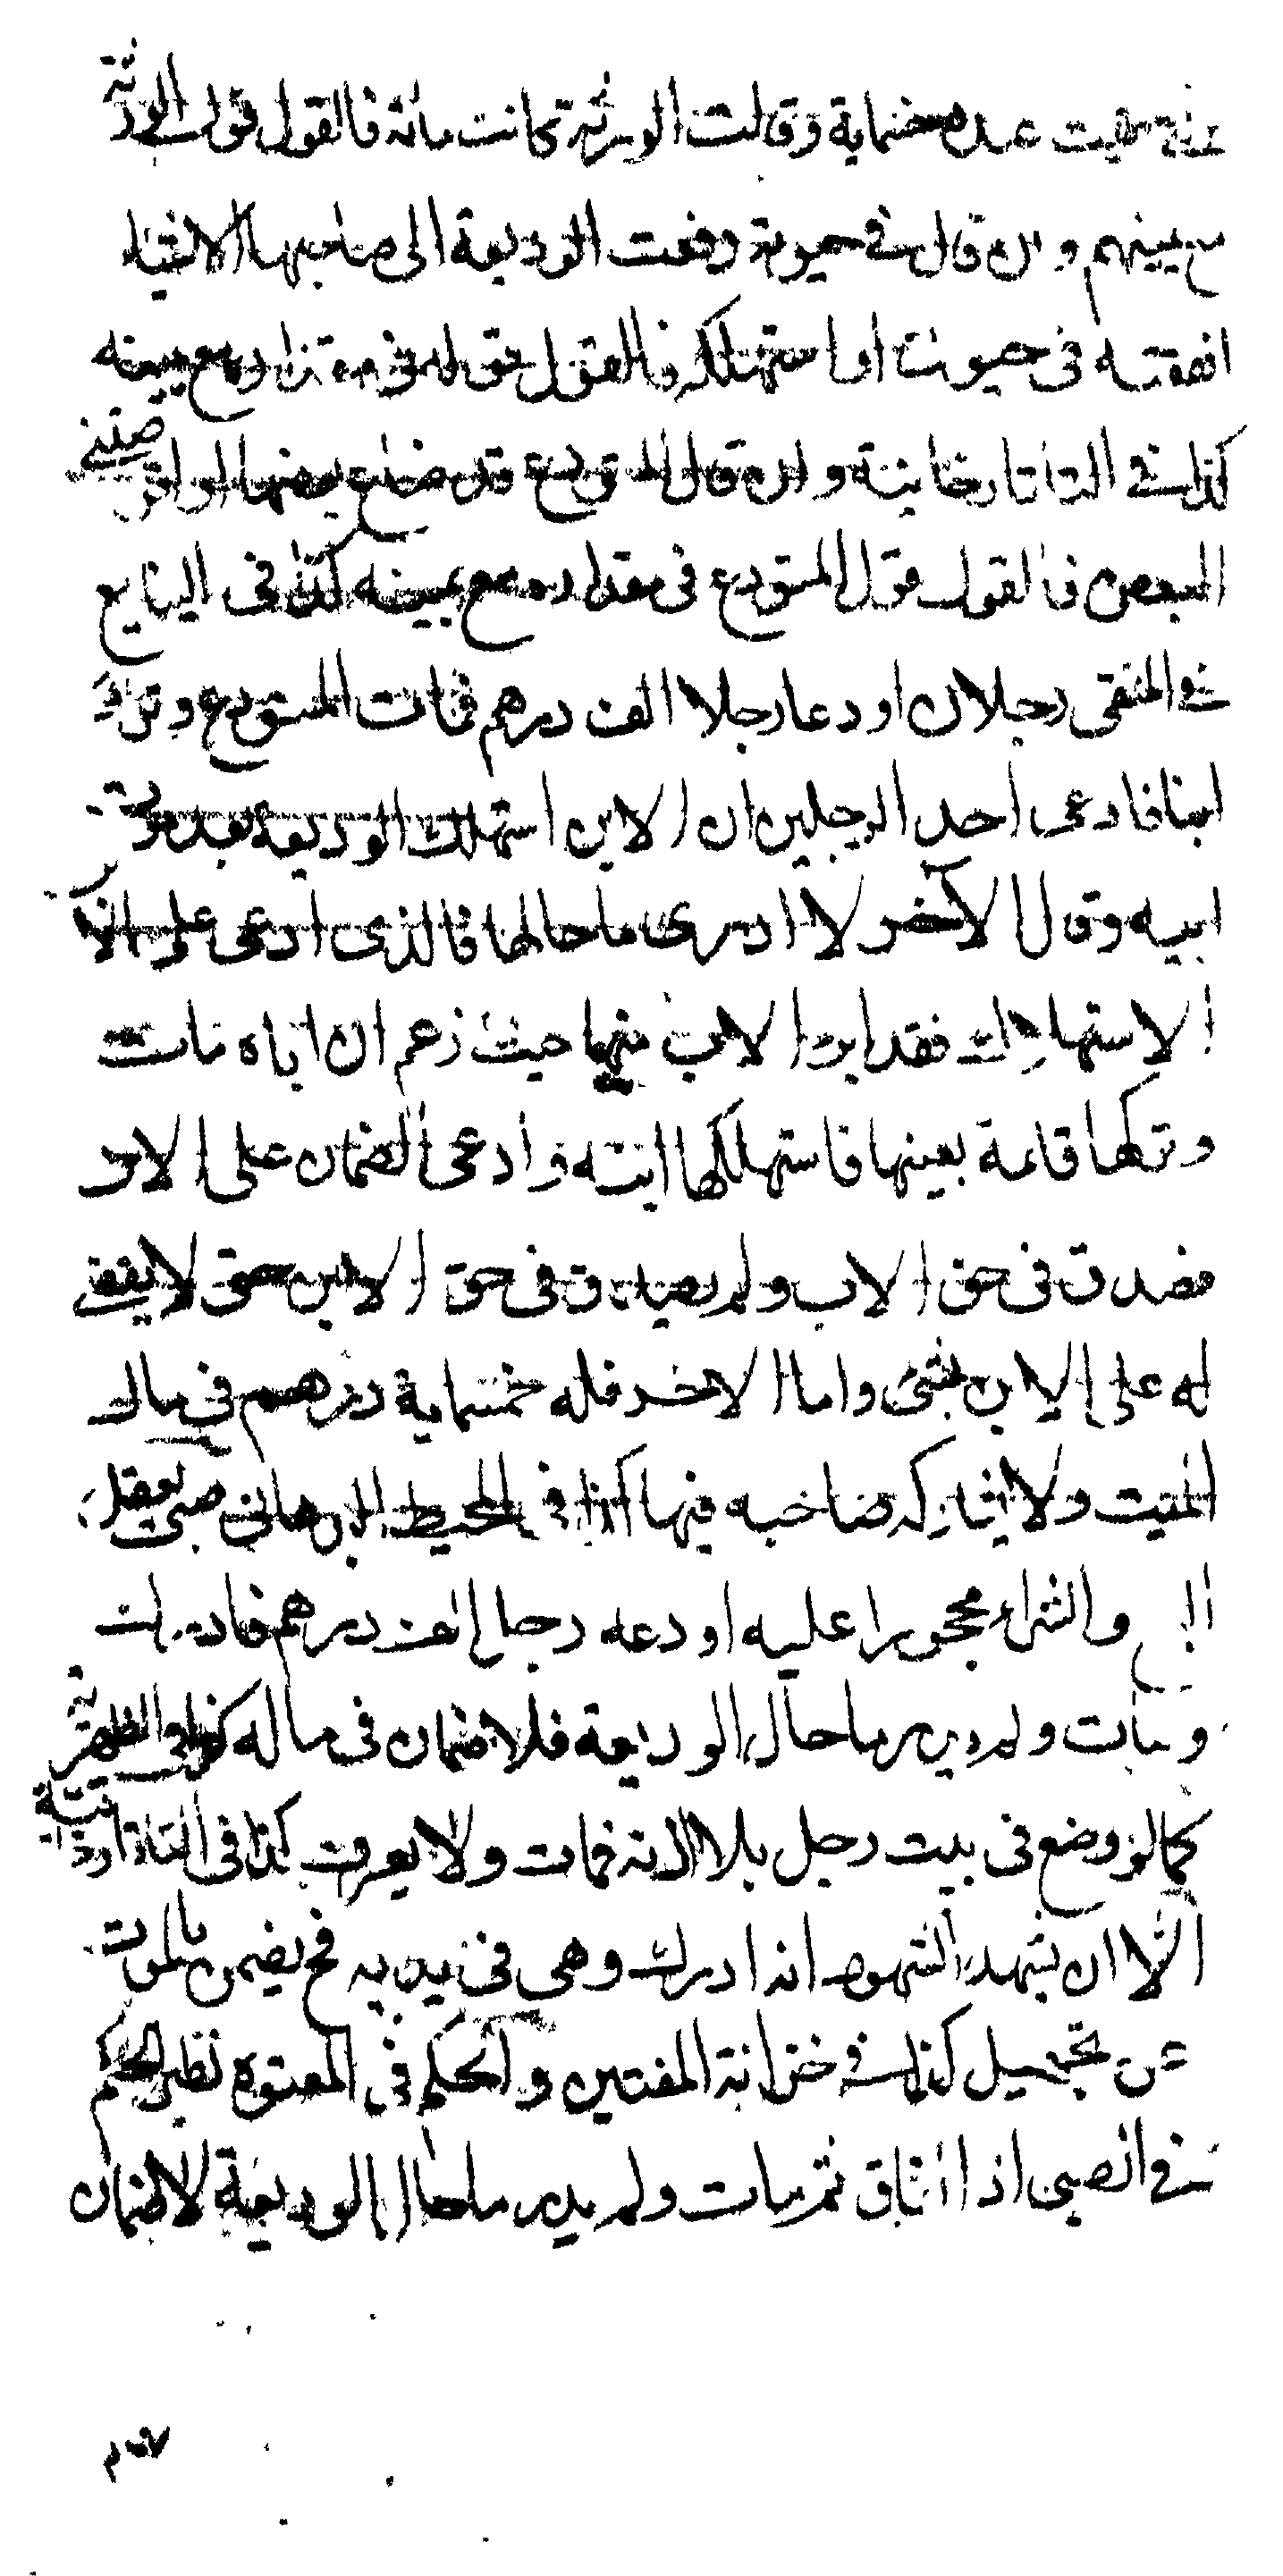 بقيت عنده خمسماية وقالت الورثة كانت مائة فالقول قول الورثة
مع يمينهم وان قال في حيوته دفعت الوديعة الى صاحبها الا شيئا
انفقته في حيوته او استهلكه فالقول قوله في مقداره مع يمينه
كذا في التاتارخانية وان قال المستودع قد ضاع بعضها او اقرضتني
البعض فالقول قول المستودع في مقداره مع يمينه كذا في الينابيع
في المنتقى رجلان اودعا رجلا الف درهم فمات المستودع وترك
ابنا فادعى احد الرجلين ان الابن استهلك الوديعة بعد موت
ابيه وقال الآخر لا ادري ما حالها فالذي ادعى على الابن
الاستهلاك فقد ابرء الاب منها حيث زعم ان اباه مات
وتركها قايمة بعينها فاستهلكها ابنه وادعى الضمان على الابن
فصدق في حق الاب ولم يصدق في حق الابن حتى لا يقضي
له على الابن بشئ واما الاخر فله خمسماية درهم في مال
الميت ولا يشاركه صاحبه فيها كذا في المحيط البرهاني صبي يعقل
البيع والشراء محجورا عليه اودعه رجل الف درهم فادرك
ومات ولم يدر ما حال الوديعة فلا ضمان في ماله كذا في الظهيرية
كما لو وضع في بيت رجل بلا اذنه فمات ولا يعرف كذا في التاتارخانية
الا ان يشهد الشهود انه ادرك وهي في يديه فح يضمن بالموت
عن تجهيل كذا في خزانة المفتين والحكم في المعتوه نظير الحكم
في الصبي اذا افاق ثم مات ولم يدر ما حال الوديعة لا ضمان